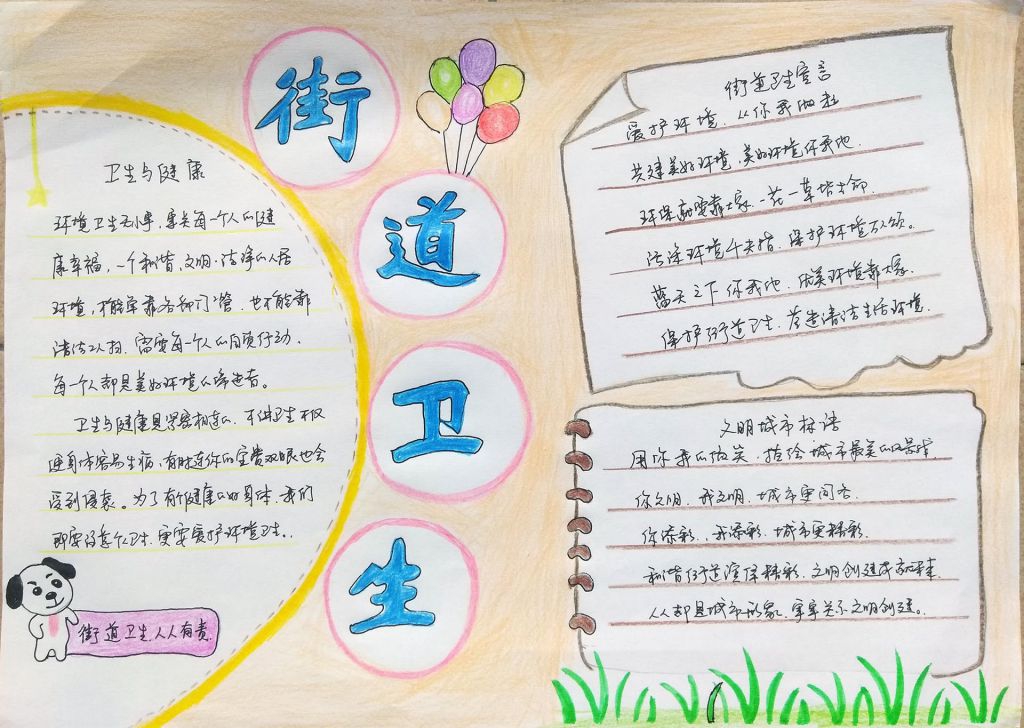 街道卫生
卫生与健康
环境卫生无小事，事关每一个人的健
康幸福，一个和谐、文明、洁净的人居
环境，不能单靠各部门管，也不能靠
清洁工人扫，需要每一个人的自觉行动，
每一个人都是美好环境的缔造者。
卫生与健康是紧密相连的，不讲卫生不仅
使身体容易生病，有时连你的宝贵双眼也会
受到侵袭。为了有个健康的身体，我们
即要讲个人卫生，更要爱护环境卫生。
街道卫生人人有责
街道卫生宣言
爱护环境，从你我做起
共建美好环境，美好环境伴我他
环保就要靠大家，一花一草皆生命
洁净环境千夫指，保护环境万人颂。
蓝天之下你我他，优美环境靠大家
保护街道卫生，营造清洁生活环境
文明城市标语
用你我的微笑，描绘城市最美的风景线
你文明，我文明，城市更闻名
你添彩，我添彩，城市更精彩
和谐街道演绎精彩，文明创建成就未来
人人都是城市形象，事事关系文明创建。